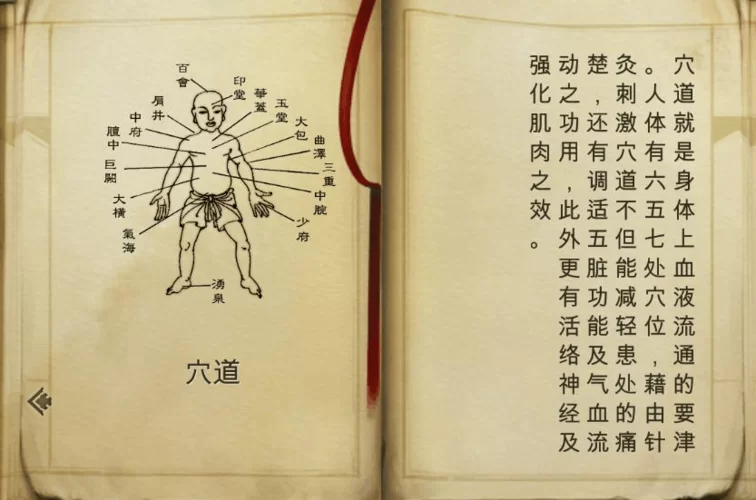 百會
印堂
華蓋
玉堂
大包
曲澤
三重
中脘
少府
肩井
中府
膻中
巨闕
大橫
氣海
湧泉
穴道
穴道就是身体上血液流通的要津
。人体有六五七处穴位，藉由针
灸刺激穴道不但能减轻患处的痛
楚，还有调适五脏功能及气血流
动之功用，此外更有活络神经及
强化肌肉之效。